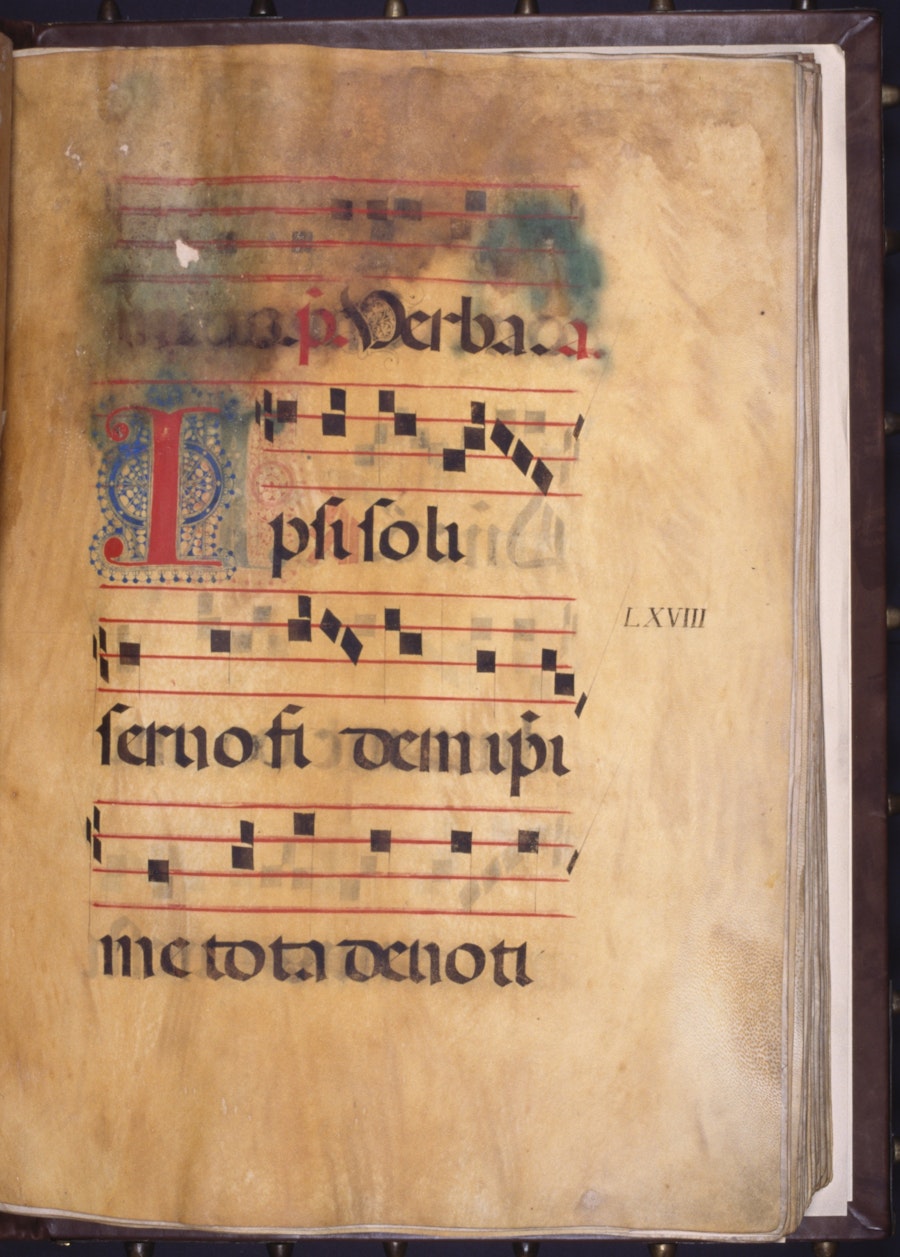 p̄. Verba. a.
Ipsi soli
LXVIII
seruo fi dem ip̄i
me tota deuoti